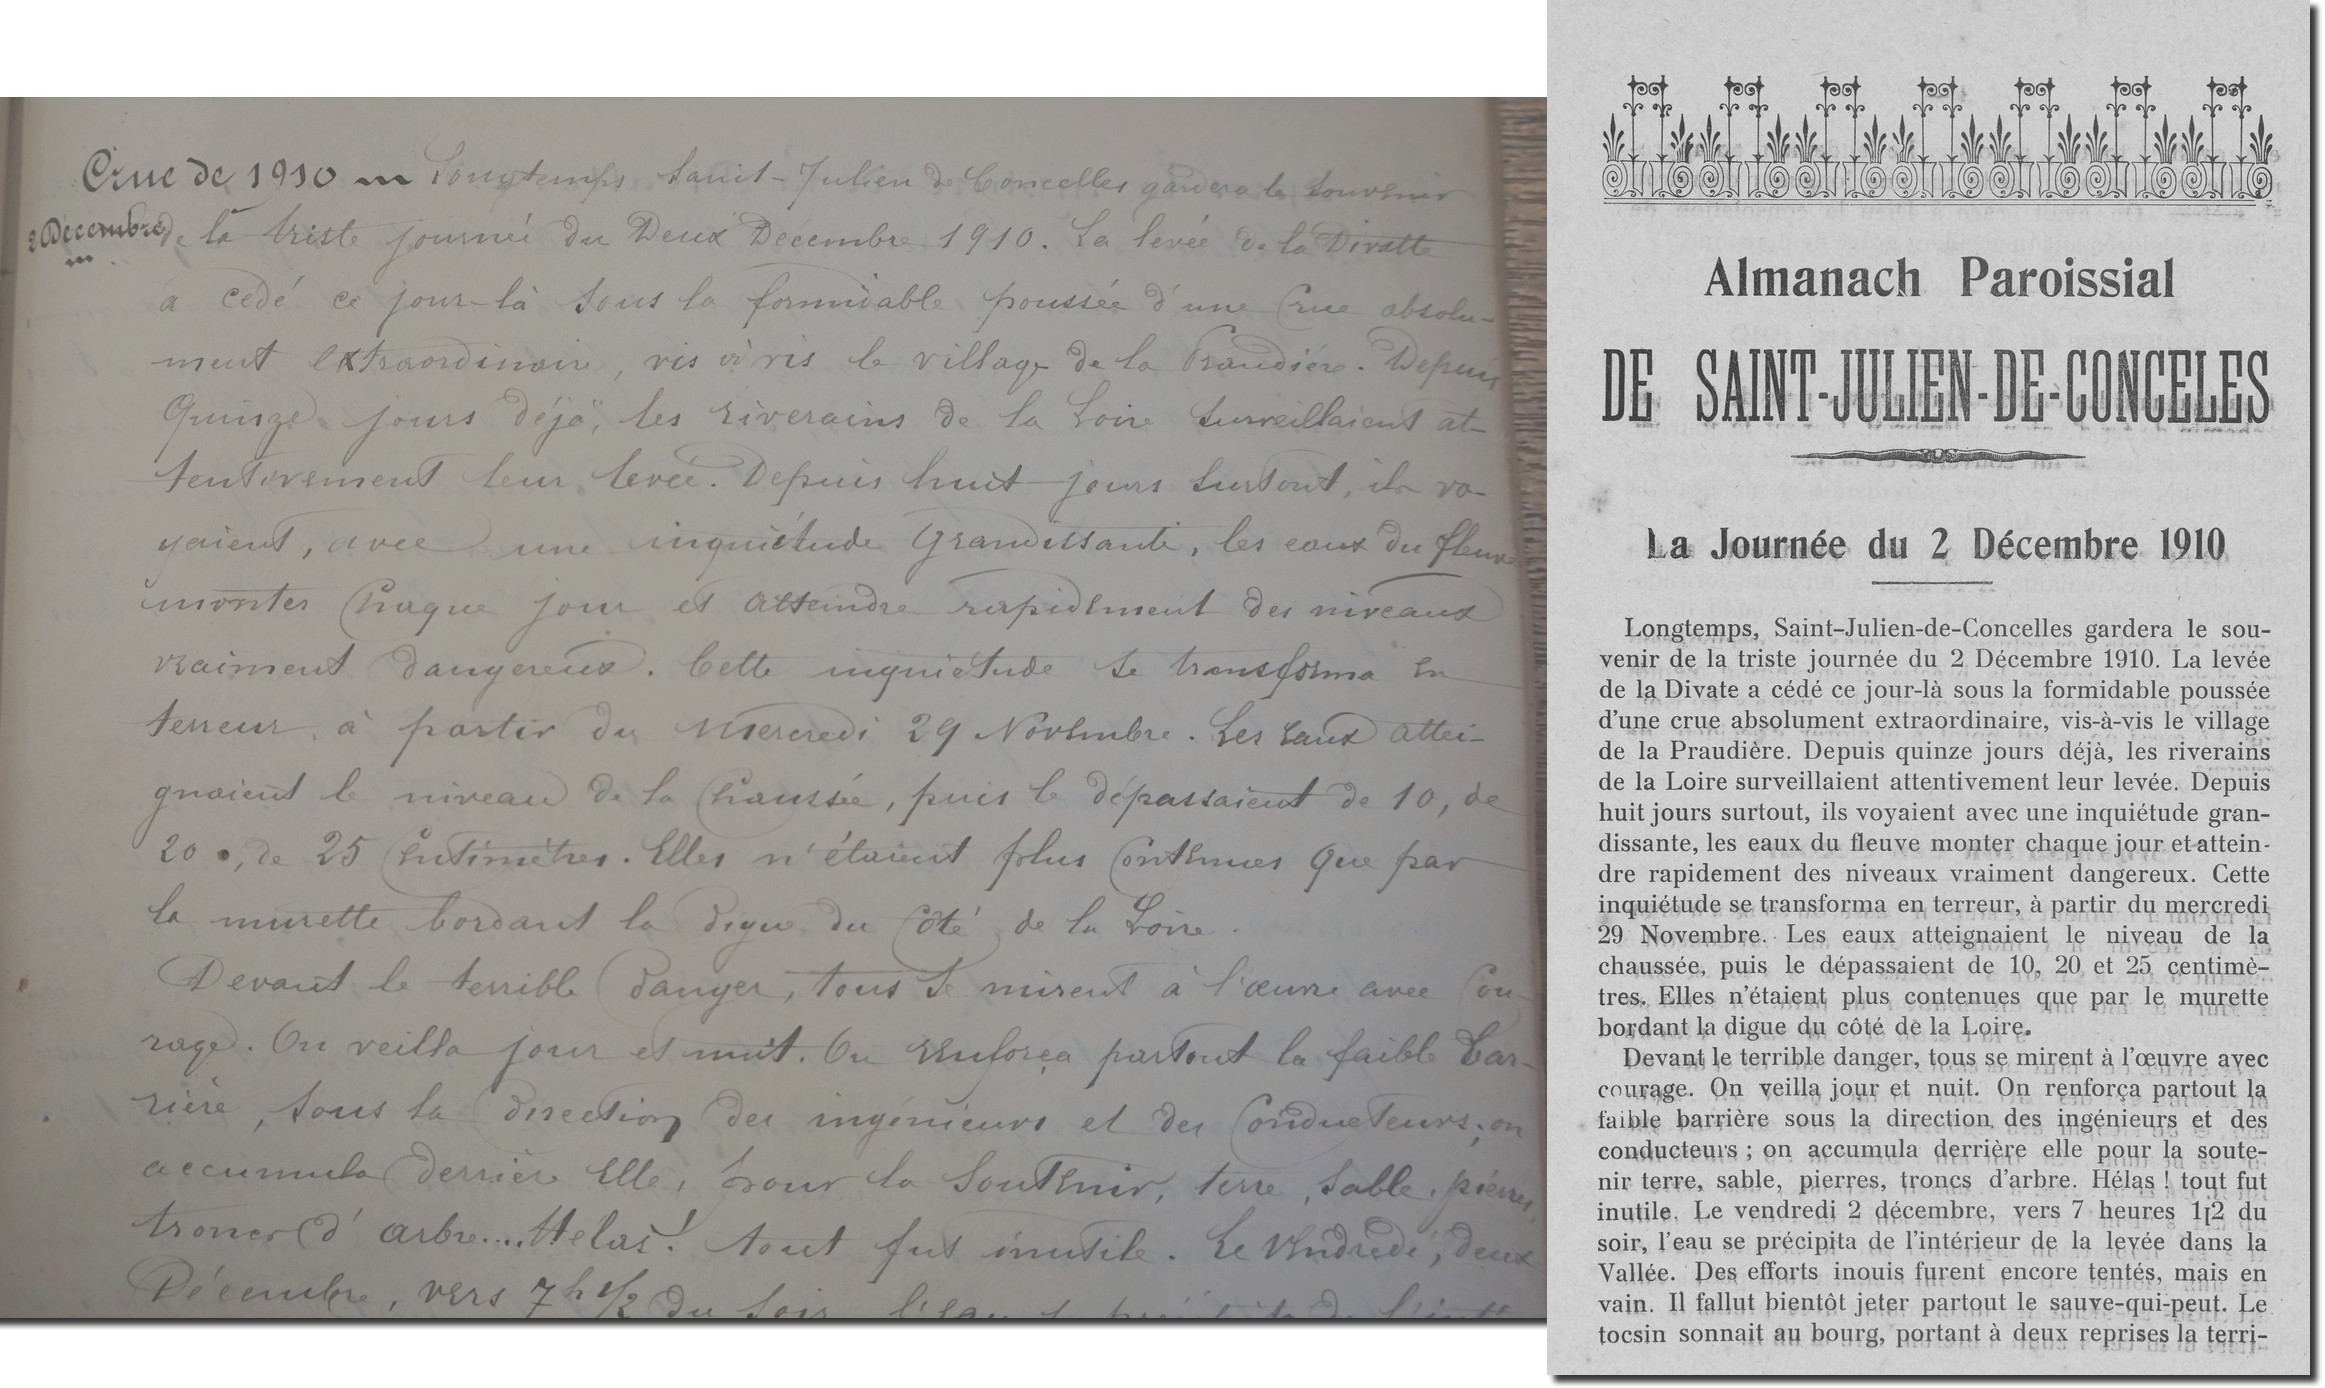 Crue de 1910 Longtemps Saint-Julien de Concelles gardera le souvenir
2 Décembre de la triste journée du Deux Décembre 1910. La levée de la Divatte
a cédé ce jour-là sous la formidable poussée d'une crue absolu-
ment extraordinaire, vis à vis le village de la Praudière. Depuis
Quinze jours déjà, les riverains de la Loire surveillaient at-
tentivement leur levée. Depuis huit jours surtout, ils vo-
yaient, avec une inquiétude grandissante, les eaux du fleuve
monter chaque jour et atteindre rapidement des niveaux
vraiment dangereux. Cette inquiétude se transforma en
terreur, à partir du Mercredi 29 Novembre. Les eaux attei-
gnaient le niveau de la chaussée, puis le dépassaient de 10, de
20, de 25 centimètres. Elles n'étaient plus contenues que par
la murette bordant la digue du côté de la Loire.
Devant le terrible danger, tous se mirent à l'œuvre avec cou-
rage. On veilla jour et nuit. On renforça partout la faible bar-
rière, sous la direction des ingénieurs et des conducteurs; on
accumula derrière elle, pour la soutenir, terre, sable, pierres,
troncs d'arbre.... Hélas! tout fut inutile. Le Vendredi, deux
Décembre, vers 7h 1/2 du soir, l'eau
Almanach Paroissial
DE SAINT-JULIEN-DE-CONCELES
La Journée du 2 Décembre 1910
Longtemps, Saint-Julien-de-Concelles gardera le sou-
venir de la triste journée du 2 Décembre 1910. La levée
de la Divate a cédé ce jour-là sous la formidable poussée
d'une crue absolument extraordinaire, vis-à-vis le village
de la Praudière. Depuis quinze jours déjà, les riverains
de la Loire surveillaient attentivement leur levée. Depuis
huit jours surtout, ils voyaient avec une inquiétude gran-
dissante, les eaux du fleuve monter chaque jour et attein-
dre rapidement des niveaux vraiment dangereux. Cette
inquiétude se transforma en terreur, à partir du mercredi
29 Novembre. Les eaux atteignaient le niveau de la
chaussée, puis le dépassaient de 10, 20 et 25 centimè-
tres. Elles n'étaient plus contenues que par le murette
bordant la digue du côté de la Loire.
Devant le terrible danger, tous se mirent à l'œuvre avec
courage. On veilla jour et nuit. On renforça partout la
faible barrière sous la direction des ingénieurs et des
conducteurs ; on accumula derrière elle pour la soute-
nir terre, sable, pierres, troncs d'arbre. Hélas ! tout fut
inutile. Le vendredi 2 décembre, vers 7 heures 1|2 du
soir, l'eau se précipita de l'intérieur de la levée dans la
Vallée. Des efforts inouis furent encore tentés, mais en
vain. Il fallut bientôt jeter partout le sauve-qui-peut. Le
tocsin sonnait au bourg, portant à deux reprises la terri-